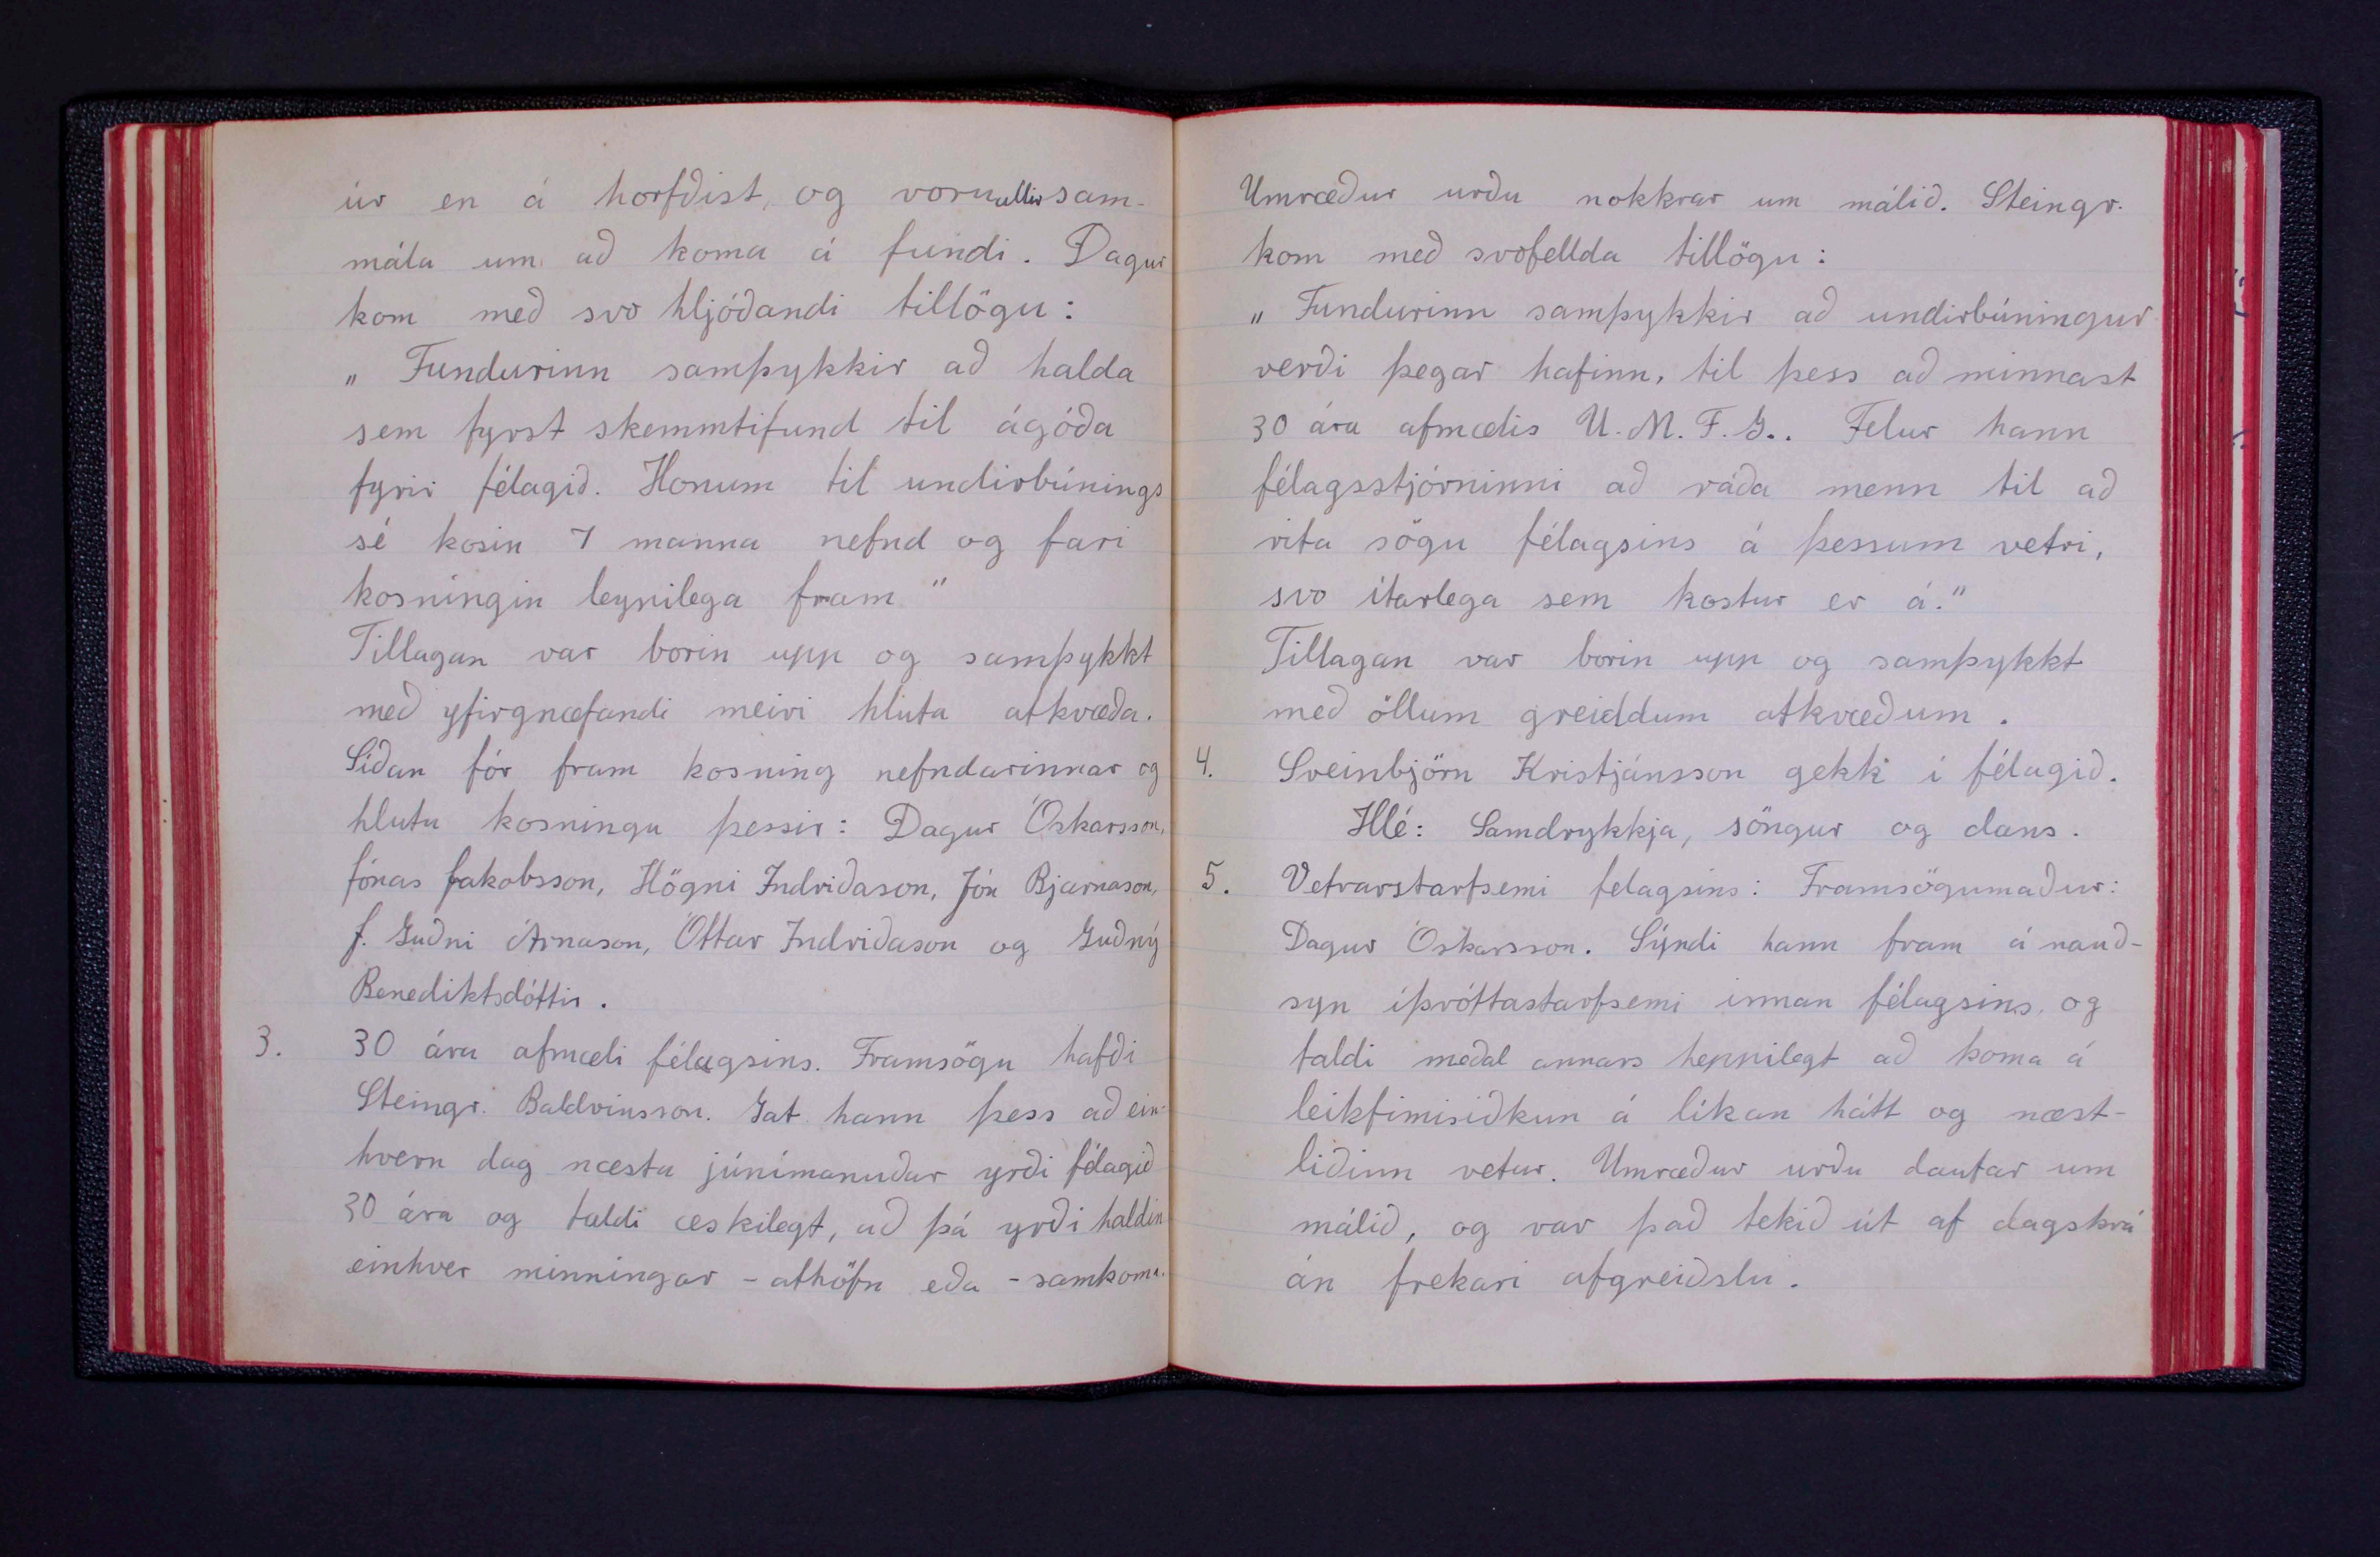 úr en á horfðist, og voru allir sam-
mála um að koma á fundi. Dagur
kom með svo hljóðandi tillögu:
„Fundurinn samþykkir að halda
sem fyrst skemmtifund til ágóða
fyrir félagið. Honum til undirbúnings
sé kosin 7 manna nefnd og fari
kosningin leynilega fram"
Tillagan var borin upp og samþykkt
með yfirgnæfandi meiri hluta atkvæða.
Síðan fór fram kosning nefndarinnar og
hlutu kosningu þessir: Dagur Óskarsson,
Jónas Jakobsson, Högni Indriðason, Jón Bjarnason,
J. Guðni Árnason, Óttar Indriðason og Guðný
Benediktsdóttir.
3. 30 ára afmæli félagsins. Framsögu hafði
Steingr. Baldvinsson. Gat hann þess að ein-
hvern dag næsta júnímanuðar yrði félagið
30 ára og taldi æskilegt, að þá yrði haldin
einhver minningar - athöfn eða - samkoma.
Umræður urðu nokkrar um málið. Steingr.
kom með svofellda tillögu:
„Fundurinn samþykkir að undirbúningur
verði þegar hafinn, til þess að minnast
30 ára afmælis U.M.F.G.. Felur hann
félagsstjórninni að ráða menn til að
rita sögu félagsins á þessum vetri,
svo ítarlega sem kostur er á."
Tillagan var borin upp og samþykkt
með öllum greiddum atkvæðum.
4. Sveinbjörn Kristjánsson gekk í félagið.
Hlé: Samdrykkja, söngur og dans.
5. Vetrarstarfsemi felagsins: Framsögumaður:
Dagur Óskarsson. Sýndi hann fram á nauð-
syn íþróttastarfsemi innan félagsins, og
taldi meðal annars heppilegt að koma á
leikfimisiðkun á líkan hátt og næst-
liðinn vetur. Umræður urðu daufar um
málið, og var það tekið út af dagskrá
án frekari afgreiðslu.